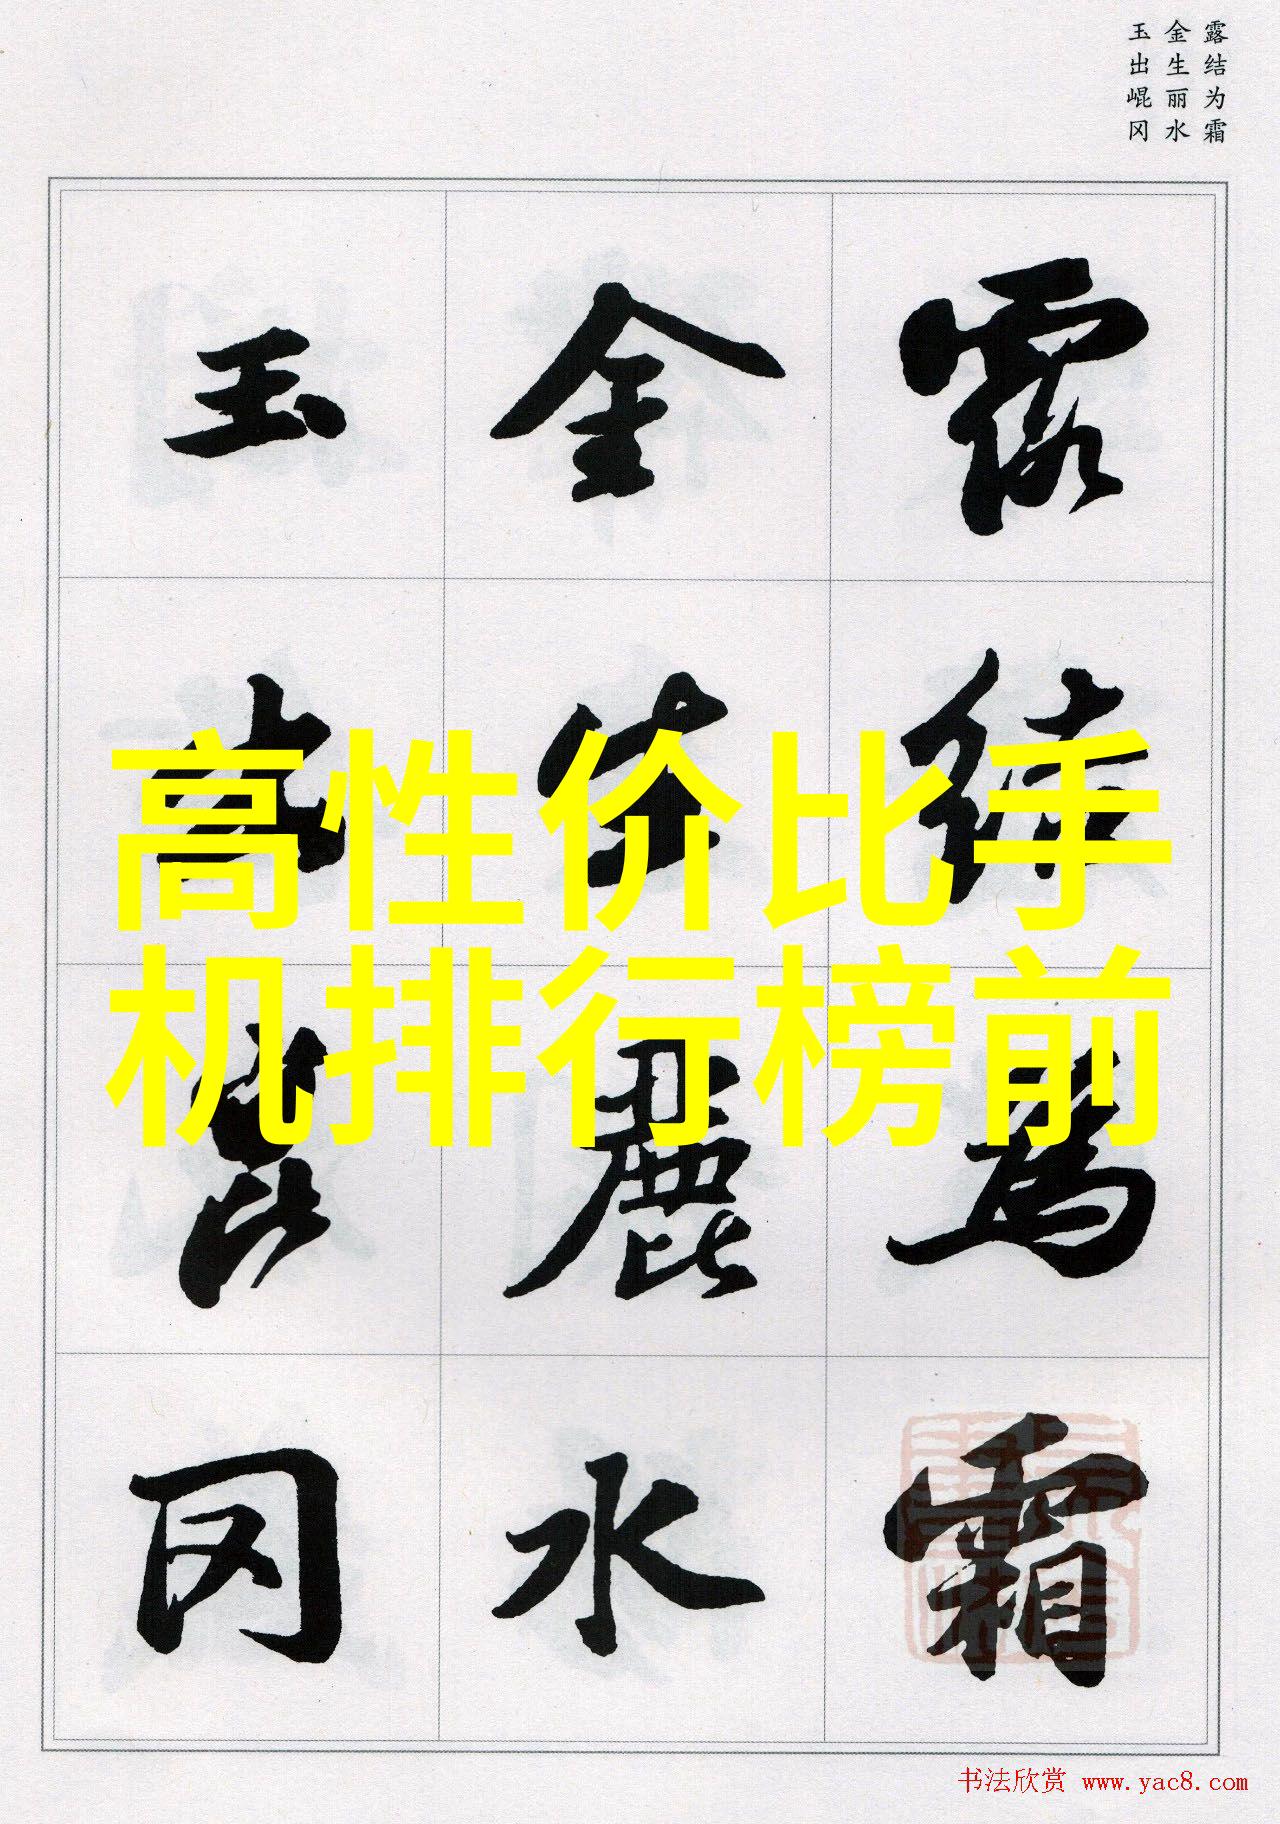 露结为霜
金生丽水
玉出崐冈
露结为霜
金生麗水
玉出崑冈
高性价比手
机排行榜前
书法欣赏 www.yac8.com